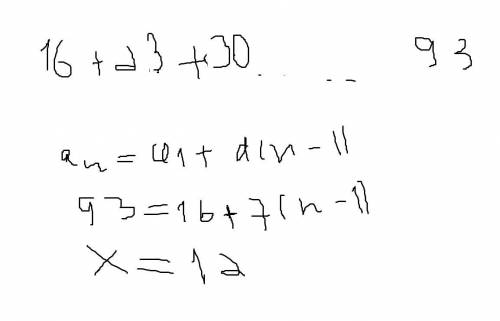 16 + 23 + 30 ..... 93
an = a1 + d(n - 1)
93 = 16 + 7(n - 1)
x = 12